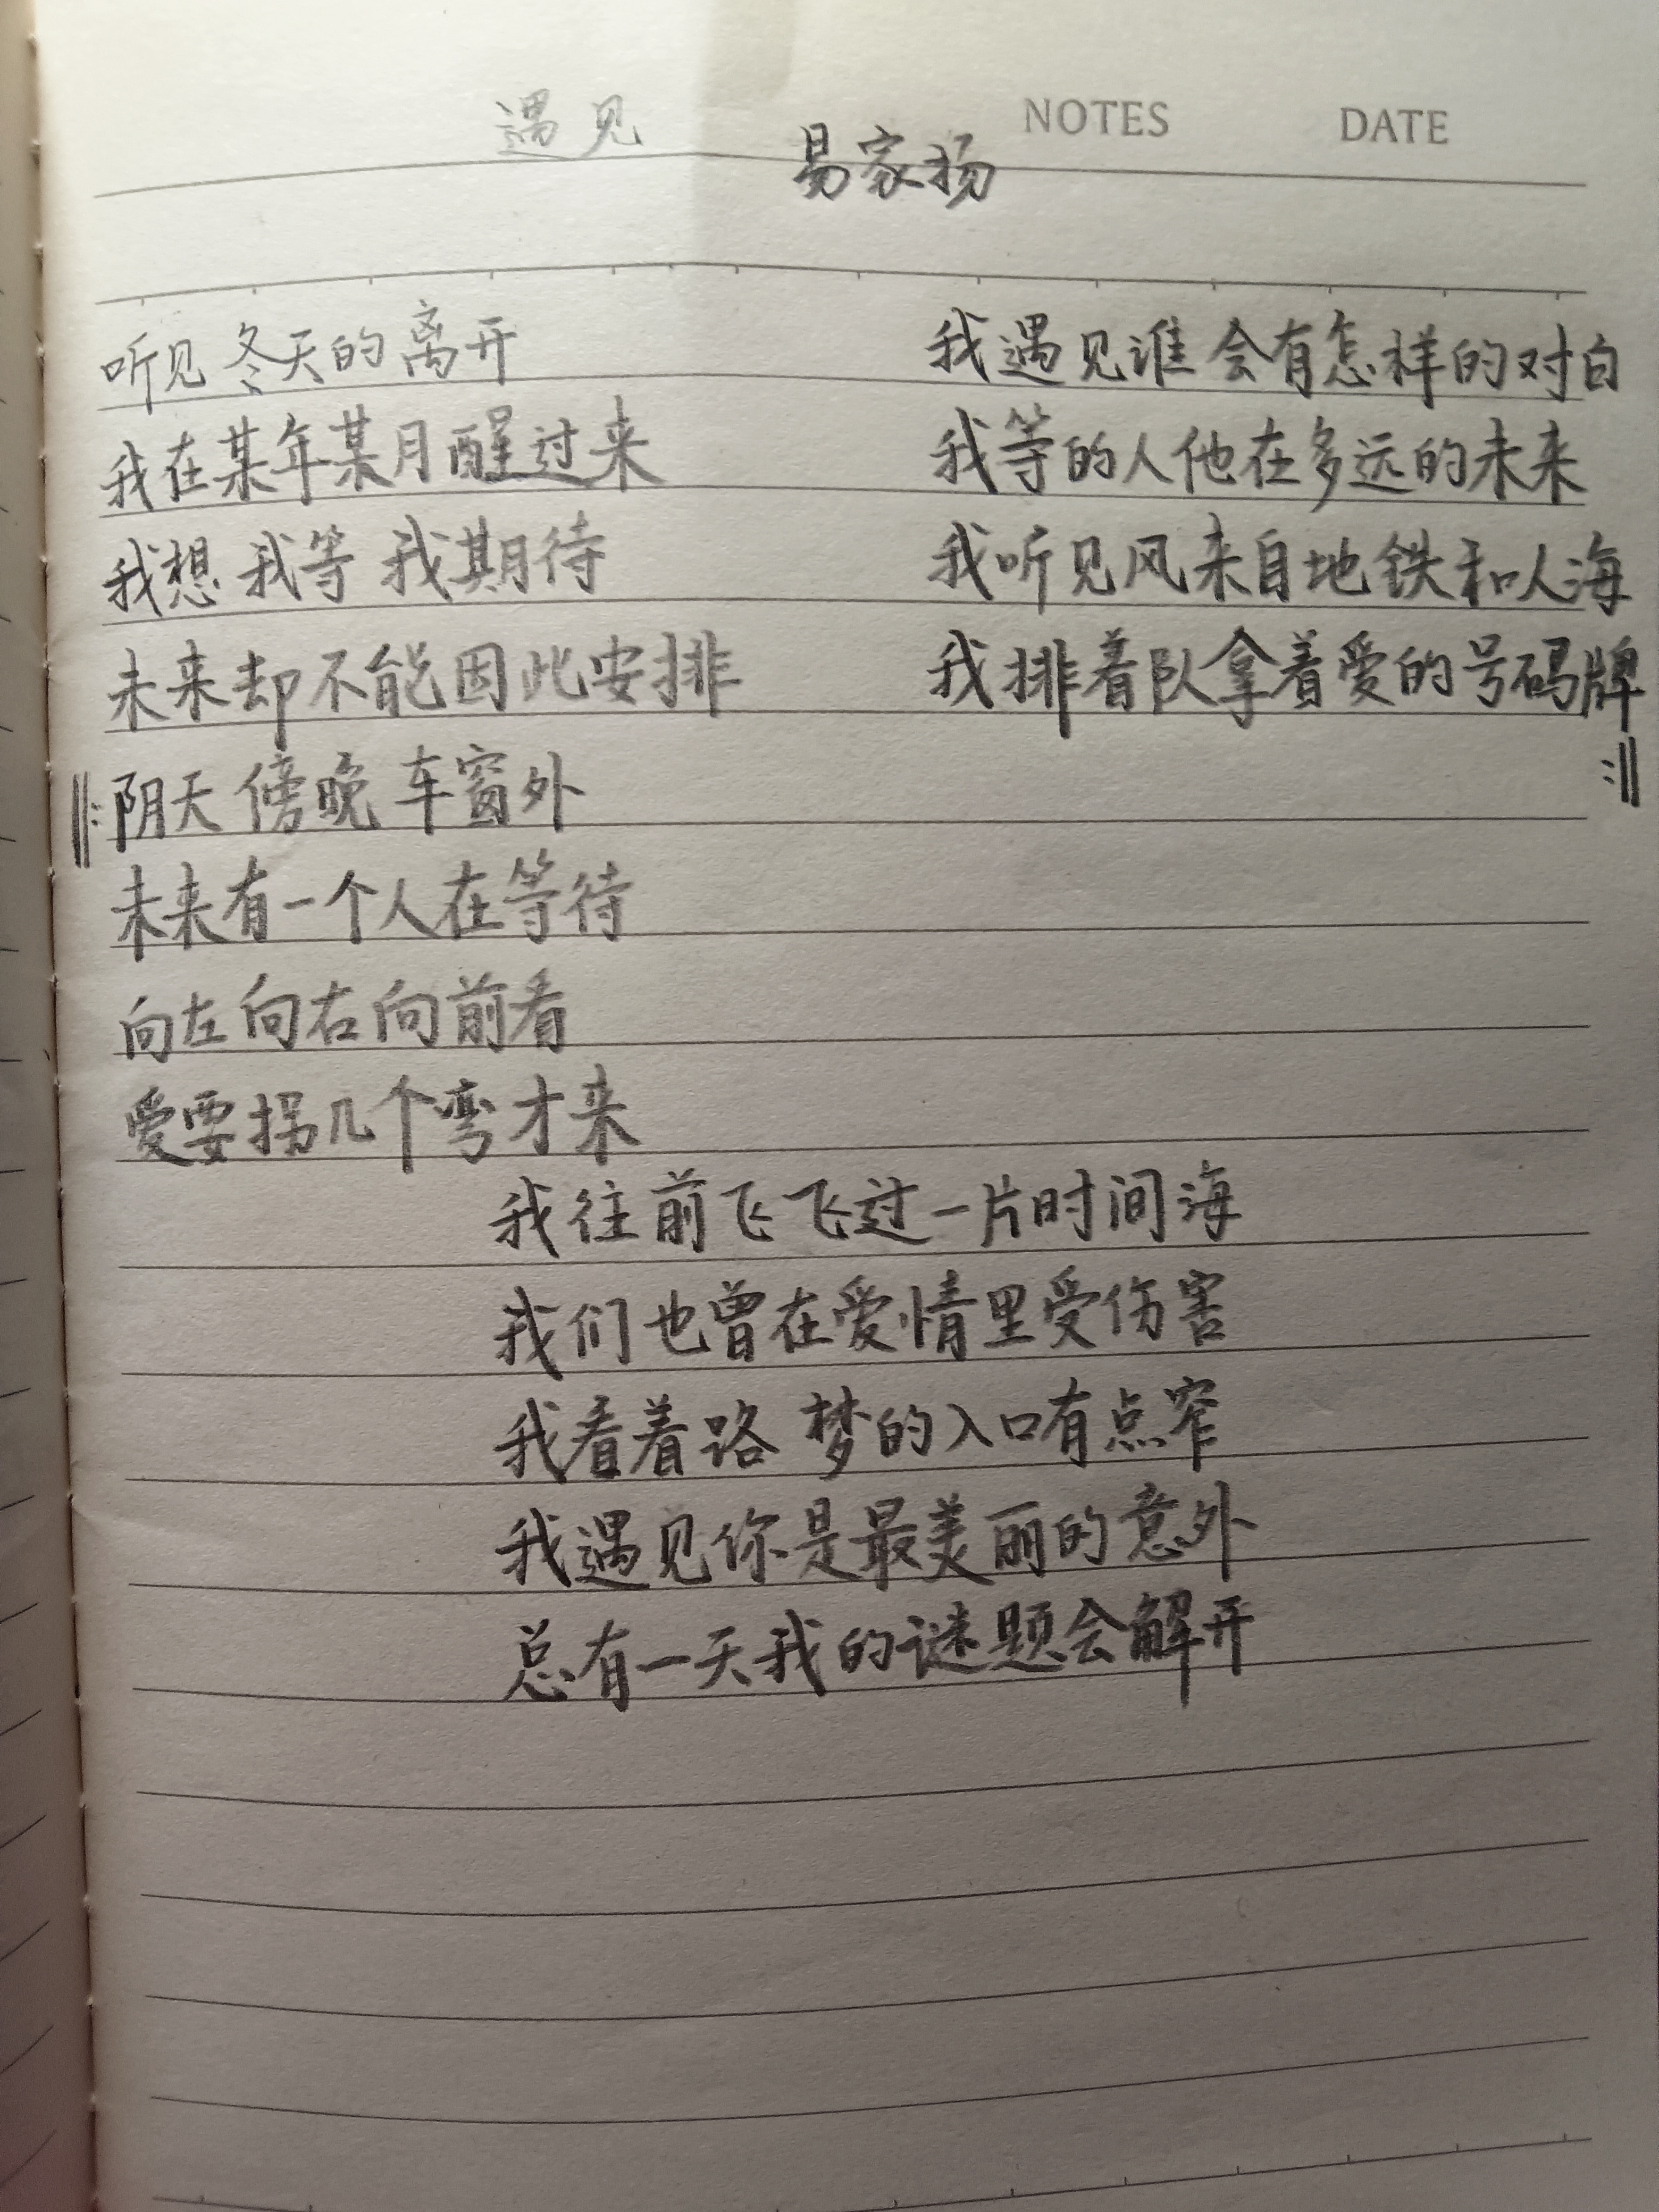 遇见
易家扬
NOTES
DATE
听见冬天的离开
我在某年某月醒过来
我想 我等 我期待
未来却不能因此安排
‖:阴天 傍晚 车窗外
未来有一个人在等待
向左向右向前看
爱要拐几个弯才来
我遇见谁 会有怎样的对白
我等的人他在多远的未来
我听见风来自地铁和人海
我排着队拿着爱的号码牌
:‖
我往前飞飞过一片时间海
我们也曾在爱情里受伤害
我看着路 梦的入口有点窄
我遇见你是最美丽的意外
总有一天我的谜题会解开